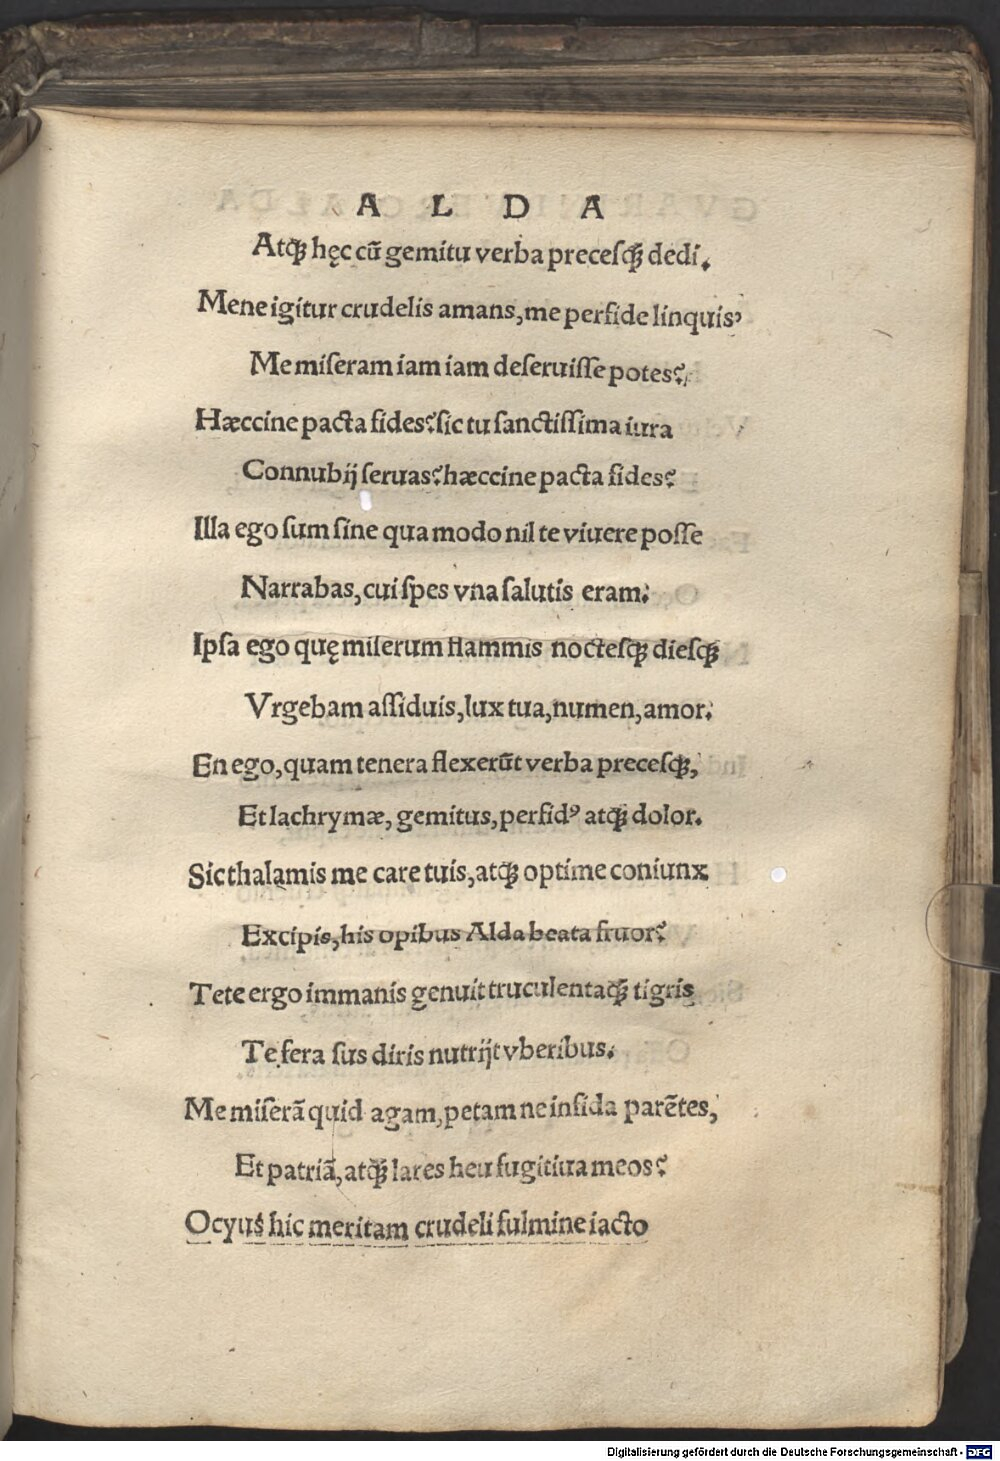 A L D A
Atq̃ hęc cū gemitu verba preceſq̃ dedi.
Mene igitur crudelis amans, me perfide linquis?
Me miſeram iam iam deſeruiſſe potes?
Hæccine pacta fides? ſic tu ſanctiſſima iura
Connubij ſeruas? hæccine pacta fides?
Illa ego ſum ſine qua modo nil te viuere poſſe
Narrabas, cui ſpes vna ſalutis eram?
Ipſa ego quę miſerum flammis nocteſq̃ dieſq̃
Vrgebam aſſiduis, lux tua, numen, amor?
En ego, quam tenera flexerūt verba preceſq̃,
Et lachrymæ, gemitus, perfidꝰ atq̃ dolor.
Sic thalamis me care tuis, atq̃ optime coniunx
Excipis, his opibus Alda beata fruor?
Tete ergo immanis genuit truculentaq̃ tigris
Te fera ſus diris nutrijt vberibus.
Me miſerã quid agam, petam ne infida parẽtes,
Et patriã, atq̃ lares heu fugitiua meos?
Ocyus hic meritam crudeli fulmine iacto
Digitalisierung gefördert durch die Deutsche Forschungsgemeinschaft - DFG